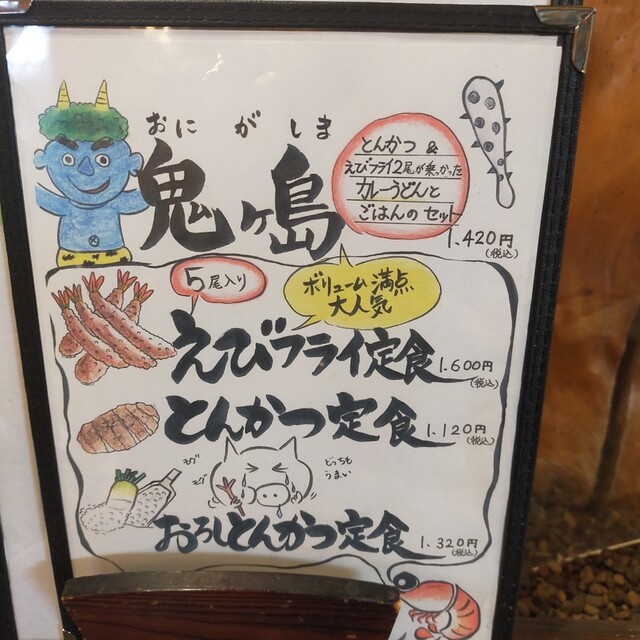 おにがしま
鬼ヶ島
とんかつ &
えびフライ2尾が乗っかった
カレーうどんと
ごはんのセット
1.420円
(税込)
5尾入り
ボリューム満点
大人気
えびフライ定食 1.600円
(税込)
とんかつ定食 1.120円
(税込)
モグ
モグ
どっちも
うまい
おろしとんかつ定食 1.320円
(税込)